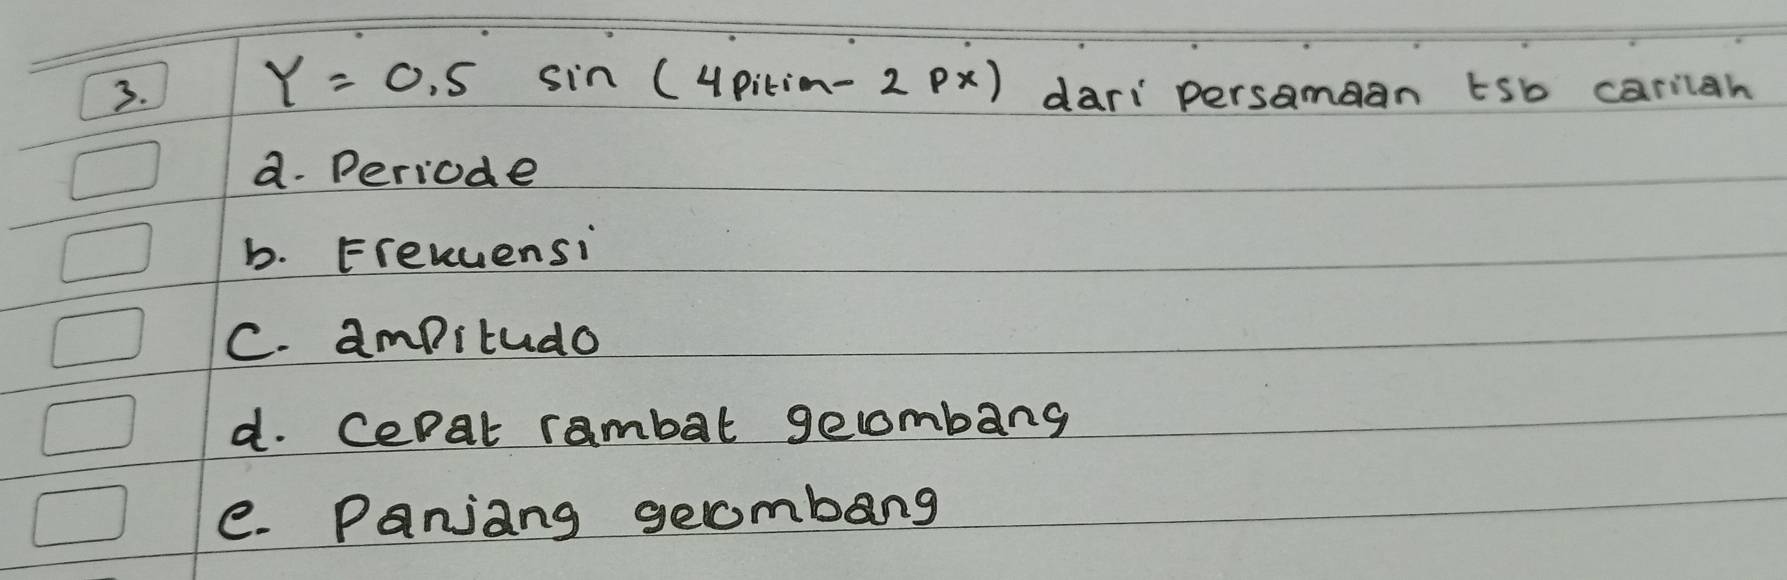 3. Y = 0,5 sin (4pitim- 2 px) dari persamaan tsb carilah
a. Periode
b. Frekuensi
C. ampitudo
d. cepat rambat gelombang
e. Panjang gelombang